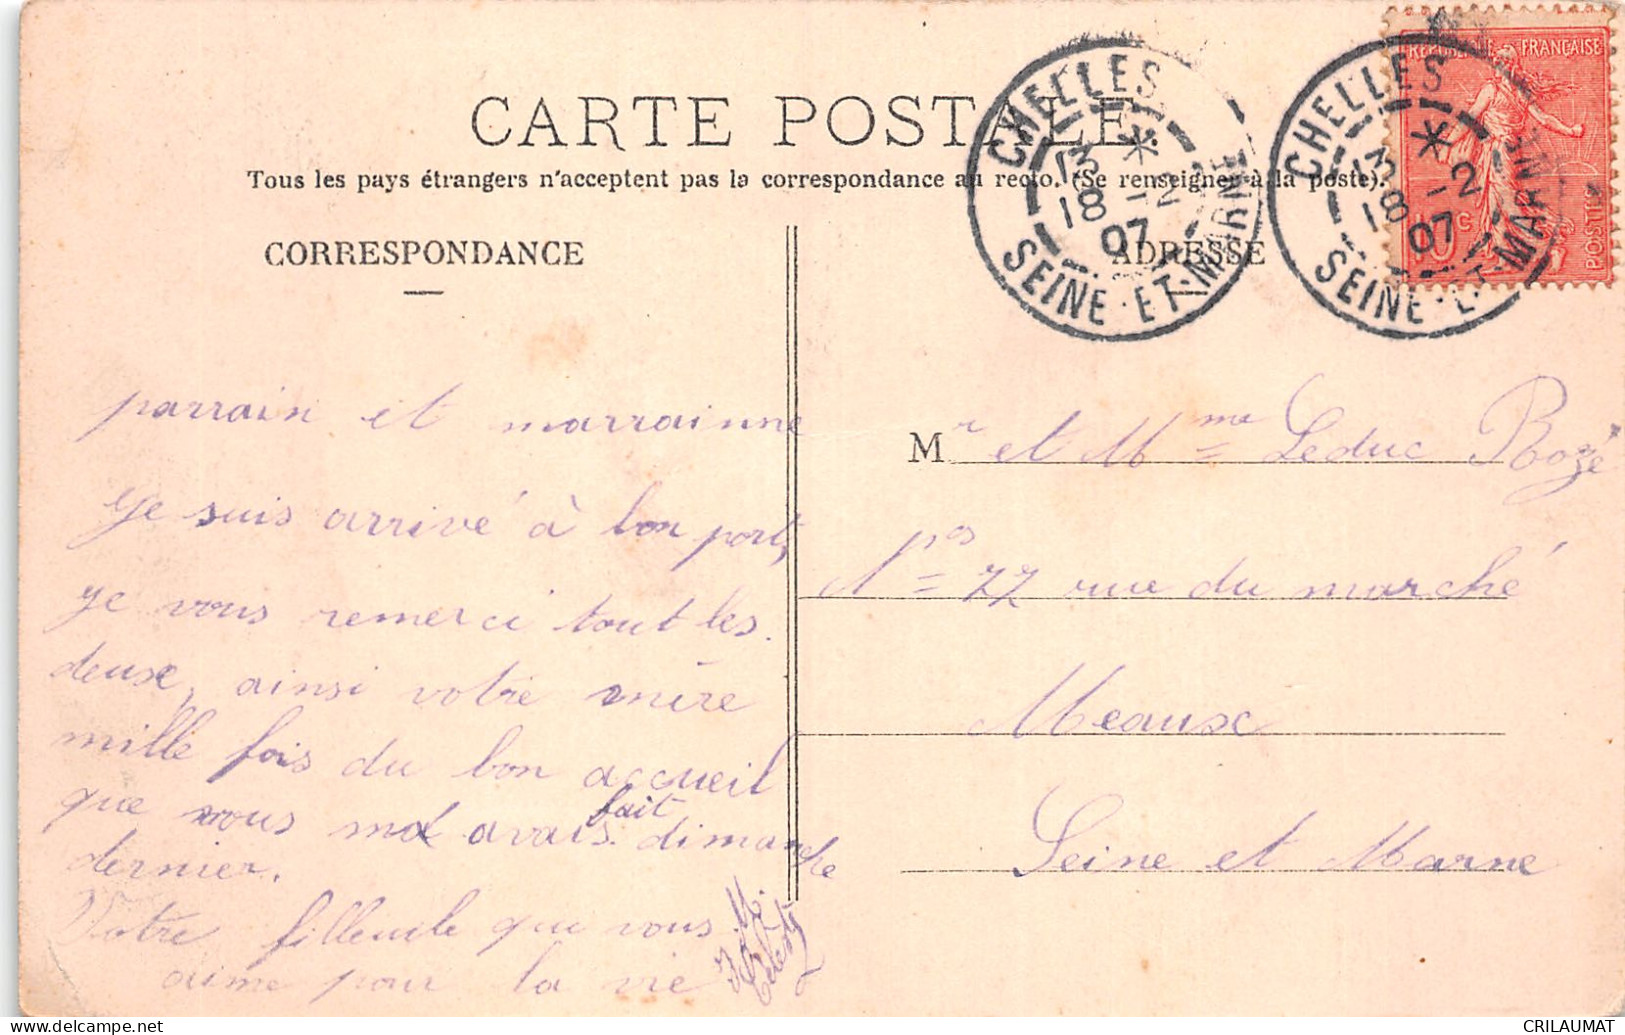 CARTE POSTALE.
Tous les pays étrangers n'acceptent pas la correspondance au recto. (Se renseigner à la poste).
CORRESPONDANCE
ADRESSE
CHELLES
*
13
18 -2
07
SEINE-ET-MARNE
CHELLES
*
13
18 -2
07
SEINE-ET-MARNE
REPUBLIQUE FRANÇAISE
10c
POSTES
parrain et marrainne
je suis arrivé à bon port,
je vous remerci tout les
deuse, ainsi votre mère
mille fois du bon accueil
que vous ma avais fait dimanche
dernier.
Votre filleule que vous
aime pour la vie
Mr et Mme Leduc Rozé
22 rue du marché
Meause
Seine et Marne
CRILAUMAT